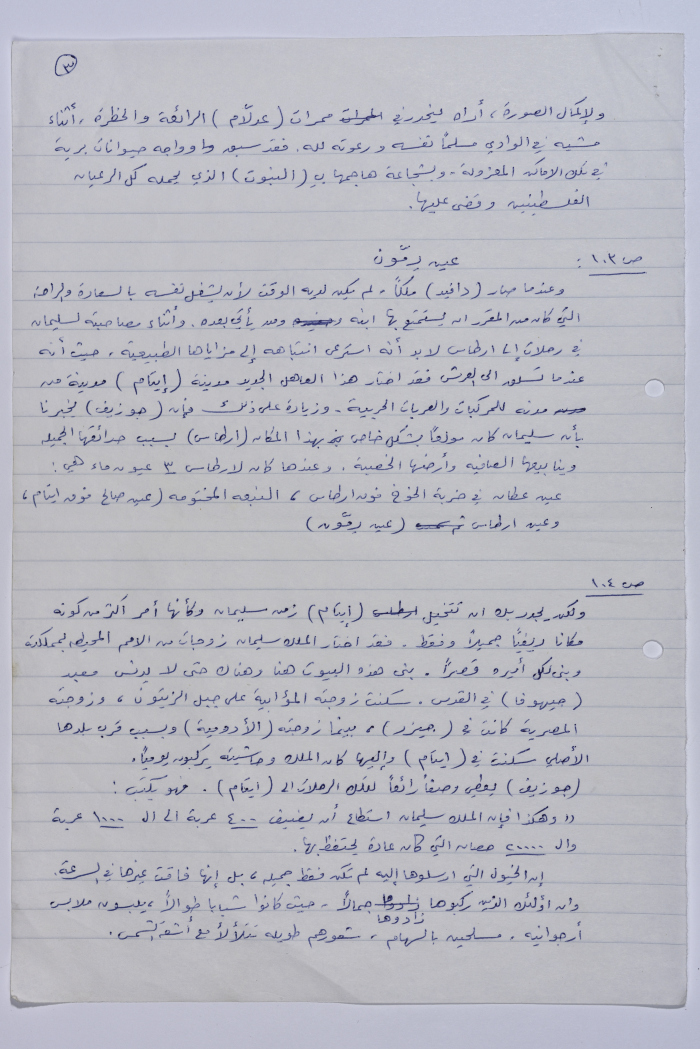 ٣
ولإكمال الصورة، أراه ينحدر في ممرات (عدلّام) الرائعة والخطرة، أثناء
مشيه في الوادي مسلماً نفسه ورعوته لله. فقد سبق واواجه حيوانات برية
في تلك الاماكن المعزولة - وبشجاعة هاجمها بـِ (النبّوت) الذي يحمله كل الرعيان
الفلسطينين وقضى عليها.
ص ١٠٣ : عين يرقّون
وعندما صار (دافيد) ملكاً، لم يكن لديه الوقت لأن يشغل نفسه بالسعادة والراحة
التي كان من المقرر ان يستمتع بها ابنه ومن يأتي بعده. وأثناء مصاحبته لسليمان
في رحلات إلى ارطاس لا بد أنه استرعى انتباهه إلى مزاياها الطبيعية، حيث أنه
عندما تسلم العرش فقد اختار هذا العاهل الجديد مدينة (إيتام) مدينة من
مدنه للمركبات والعربات الحربية. وزيادة على ذلك فإن (جوزيف) يخبرنا
بأن سليمان كان مولعاً بشكل خاص بهذا المكان (ارطاس) بسبب حدائقها الجميله
وينابيعها الصافيه وأرضها الخصبة. وعندها كان لارطاس ٣ عيون ماء هي:
عين عطان في خربة الخوخ فوق ارطاس، النبعه المختومه (عين صالح فوق ايتام،
وعين ارطاس ثم (عين يرقّون)
ص ١٠٤
ولكن يجدر بك ان تتخيل (إيتام) زمن سليمان وكأنها أمر أكثر من كونه
مكانا ريفيّا جميلاً وفقط. فقد اختار الملك سليمان زوجات من الامم المحيطه بمملكته
وبنى لكل أميره قصراً. بنى هذه البيوت هنا وهناك حتى لا يدنس معبد
(جيهوفا) في القدس. سكنت زوجته المؤابية على جبل الزيتون، وزوجته
المصرية كانت في (جيزر)، بينما زوجته (الأدومية) وبسبب قرب بلدها
الأصلي سكنت في (ايتام) وإليها كان الملك وحاشيته يركبون يومياً.
(جوزيف) يعطي وصفاً رائعاً لتلك الرحلات الى (ايتام). فهو يكتب:
"وهكذا فإن الملك سليمان استطاع أن يضيف ٤٠٠ عربة الى ال ١٠٠٠ عربة
وال ٢٠٠٠٠ حصان التي كان عادة يحتفظ بها.
إن الخيول التي ارسلوها إليه لم تكن فقط جميله، بل إنها فاقت غيرها في السرعة.
وان أولئك الذين ركبوها زادوها جمالاً - حيث كانوا شبابا طوالاً، يلبسون ملابس
أرجوانيه، مسلحين بالسهام، شعورهم طويله تتلألأ مع أشعة الشمس.